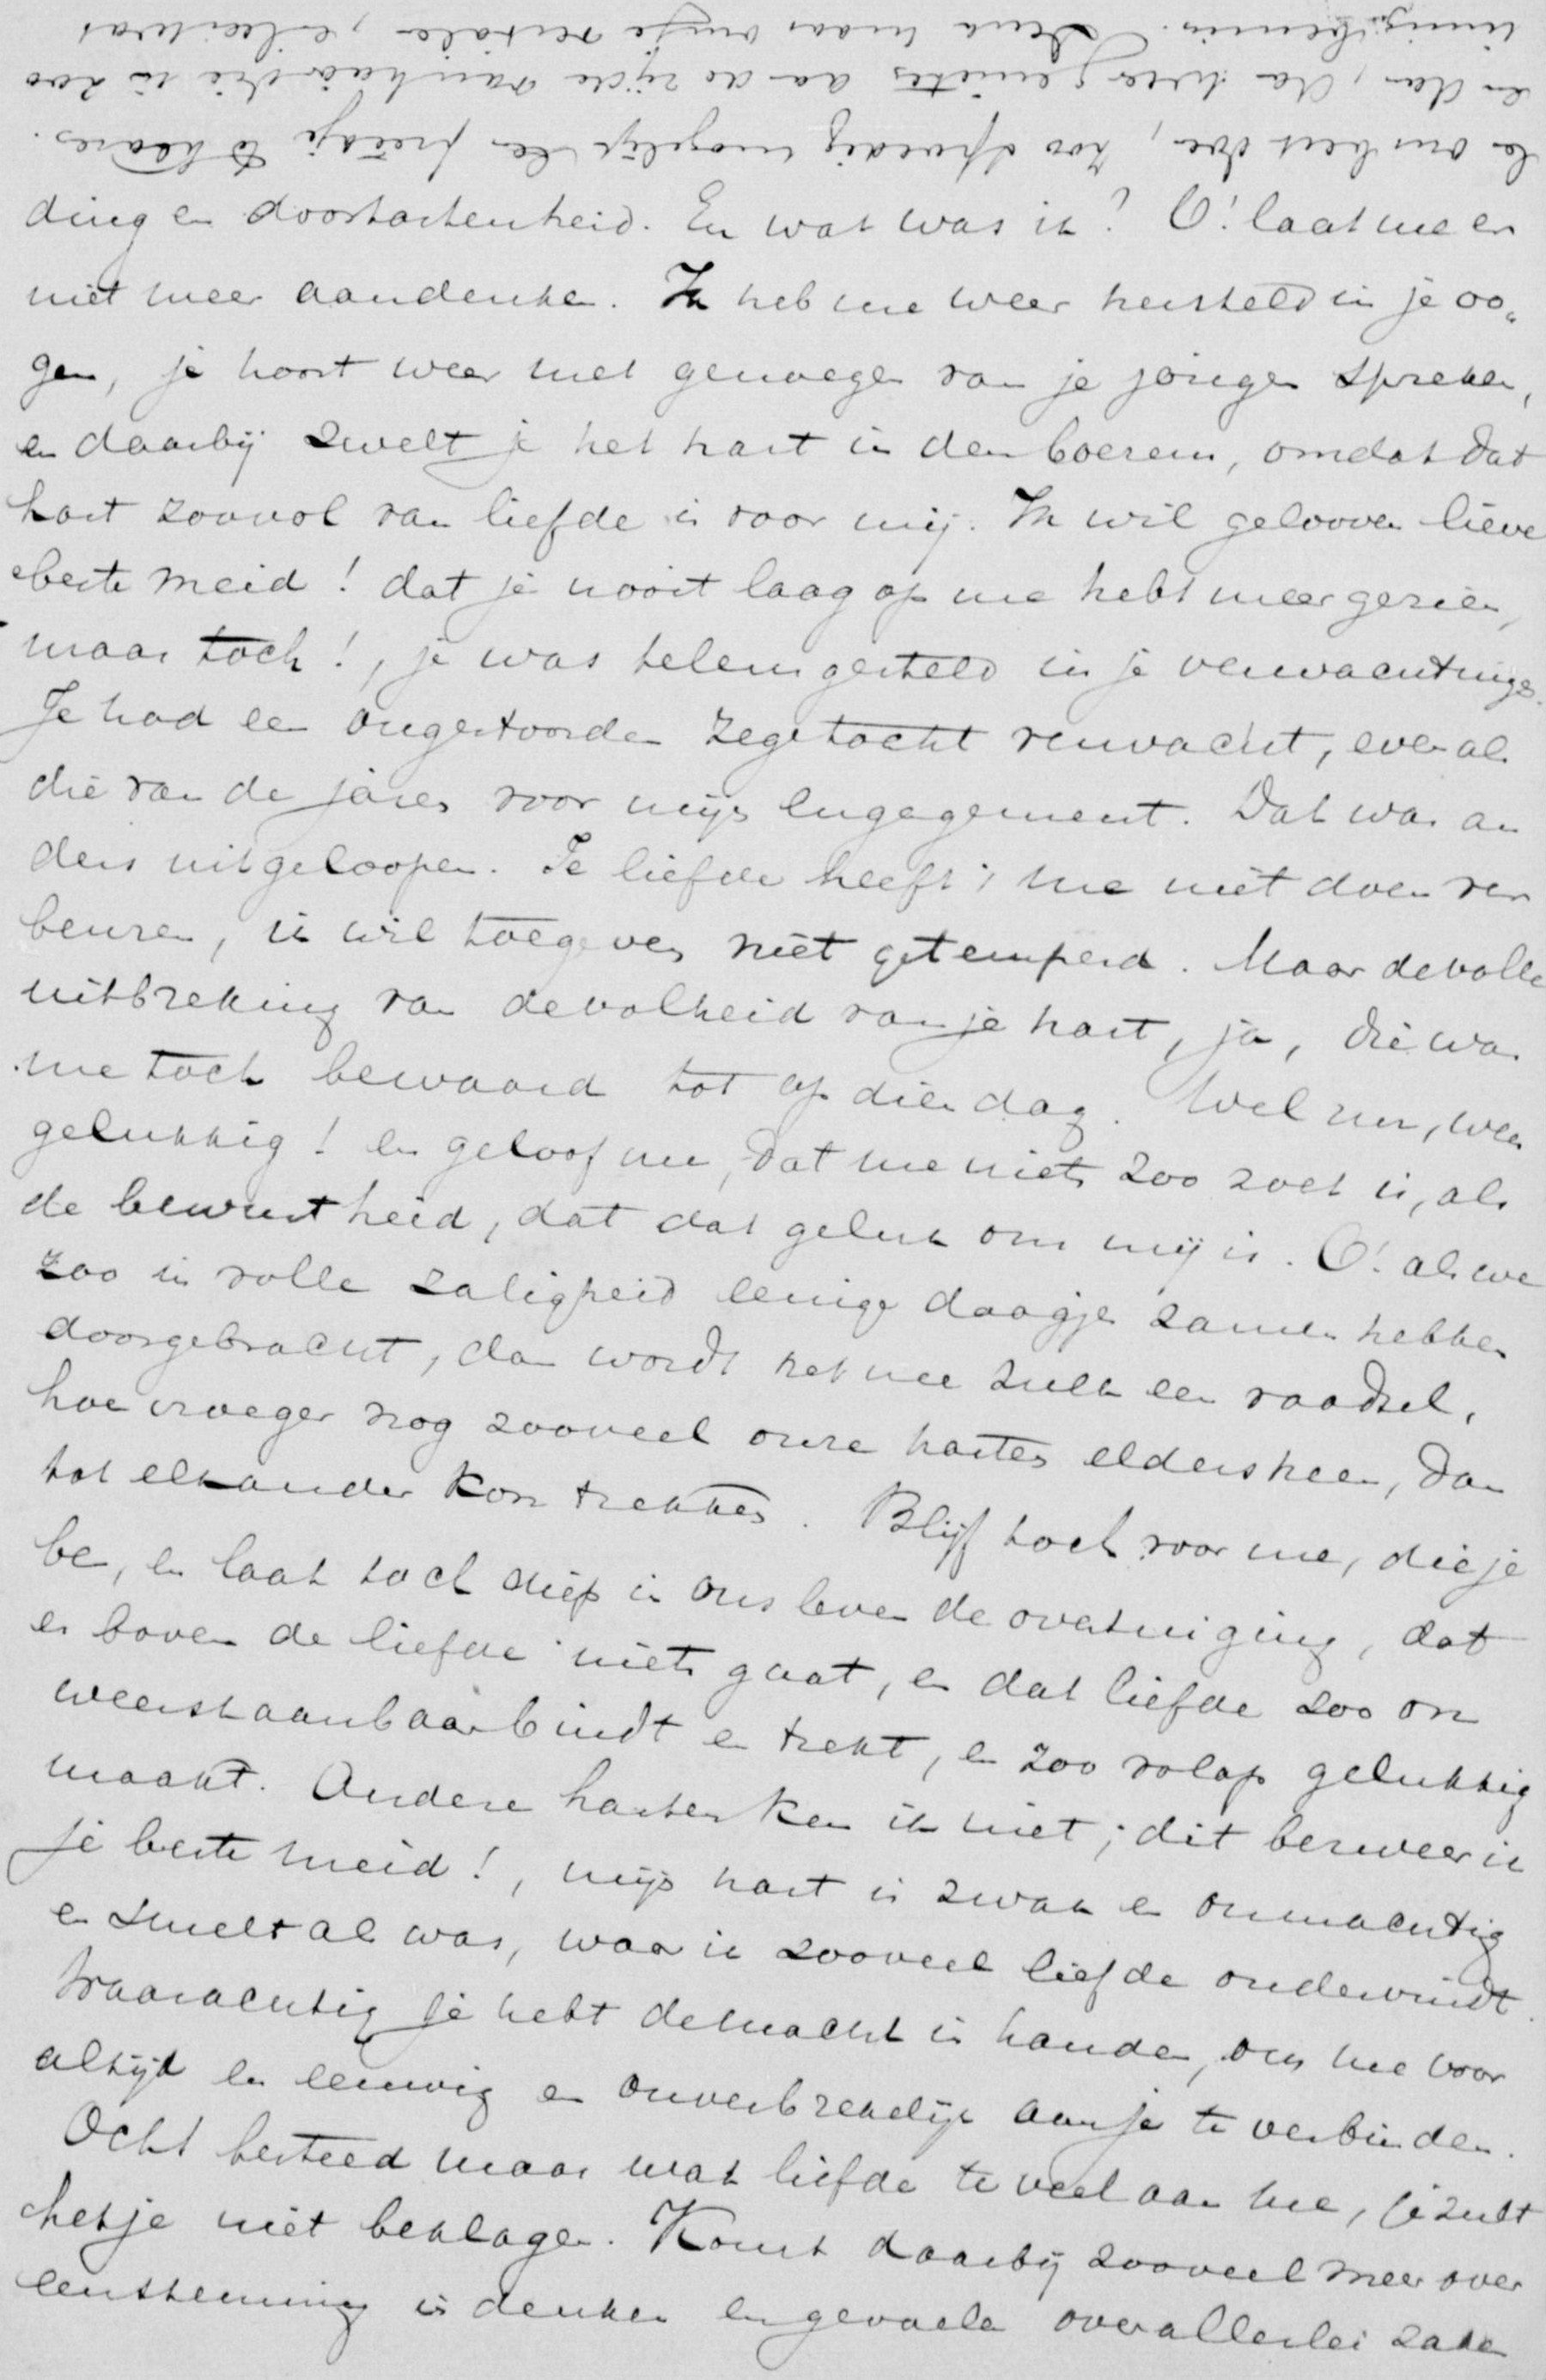 en ons best doen, zoo spoedig mogelijk een preekje te hooren.
en dan, da hier genieten aan de zijde van haar die ik zoo
innig bemin. Dena maar ontje
ding en doortastenheid. En wat was ik? O! laat me er
niet meer aandenken. Ik heb me weer hersteld in je oo„
gen, je hoort weer met genoegen van je jongen spreken,
en daarbij zwelt je het hart in den boezem, omdat dat
hart zoovol van liefde is voor mij. Ik wil gelooven lieve
beste meid! dat je nooit laag op me hebt neergezien,
maar toch!, je was teleurgesteld in je verwachtingen.
Je had een ongestoorden zegetocht verwacht, evenals
die van de jaren voor mijn engagement. Dat was an
ders uitgeloopen. Je liefde heeft 't me niet doen ver
beuren, ik wil toegeven niet getemperd. Maar de volle
uitbreking van de volheid van je hart, ja, die was
me toch bewaard tot op dien dag. Wel nu, wees
gelukkig! en geloof me, dat me niets zoo zoet is, als
de bewustheid, dat dat geluk om mij is. O! als we
zoo in volle zaligheid eenige daagjes samen hebben
doorgebracht, dan wordt het me zulk een raadsel,
hoe vroeger nog zooveel onze harten eldersheen, dan
tot elkander kon trekken. Blijf toch voor me, die je
ben, en laat toch diep in ons leven de overtuiging, dat
er boven de liefde niets gaat, en dat liefde zoo on
weerstaanbaar bindt en trekt, en zoo volop gelukkig
maakt. Andere harten ken ik niet; dit bezweer ik
je beste meid!, mijn hart is zwak en onmachtig
en smelt als was, waar ik zooveel liefde ondervindt.
Waarachtig je hebt de macht in handen, om me voor
altijd en eeuwig en onverbrekelijk aan je te verbinden.
Och! besteed maar wat liefde te veel aan me, je zult
het je niet beklagen. Komt daarbij zooveel meer over
eenstemming in denken en gevoelen over allerlei zaken